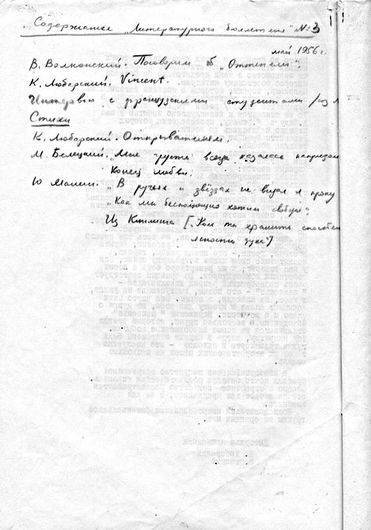 Содержание „Литературного бюллетеня“ № 3
май 1956 г.
В. Волконский. Поговорим об „Оттепели“.
К. Любарский. Vincent.
Интервью с французскими студентами
Стихи
К. Любарский. Открывателям.
М. Белецкий. Мне грусть всегда казалась
Конец любви.
Ю. Манин. „В ручьях и звёздах не видал я проку“
„Как мы беспощадно хотим свободы“
Из Киплинга [„Коль ты хранить способен
ясность духа“]